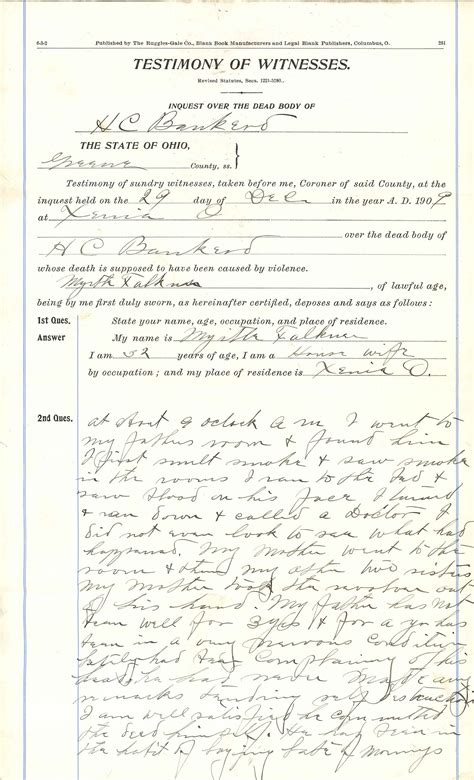 6-3-2 Published by The Ruggles-Gale Co., Blank Book Manufacturers and Legal Blank Publishers, Columbus, O. 281
TESTIMONY OF WITNESSES.
Revised Statutes, Secs. 1221-
INQUEST OVER THE DEAD BODY OF
H C Bankerd
THE STATE OF OHIO,
Greene County, ss.
Testimony of sundry witnesses, taken before me, Coroner of said County, at the
inquest held on the 29 day of Dec in the year A. D. 1909
at Xenia O
over the dead body of
H C Bankerd
whose death is supposed to have been caused by violence.
Myrtle, of lawful age,
being by me first duly sworn, as hereinafter certified, deposes and says as follows:
1st Ques. State your name, age, occupation, and place of residence.
Answer My name is
I am 32 years of age, I am a House wife
by occupation; and my place of residence is Xenia O.
2nd Ques. at about 9 oclock a m I went to
my fathers room & found him
I first smelt smoke & saw smoke
in the rooms I ran to the bed &
saw blood on his face I turned
& ran down & called a Doctor I
did not even look to see what had
happened. My Mother went to the
room & then my two sisters
my Mother took the revolver out
of his hand. My father has not
been well for 3 yrs & for a yr has
been in a very nervous condition
lately had been complaining of his
head has never made any
remarks self destruction
I am well satisfied he committed
the deed himself. He has been in
the habit of laying late of mornings